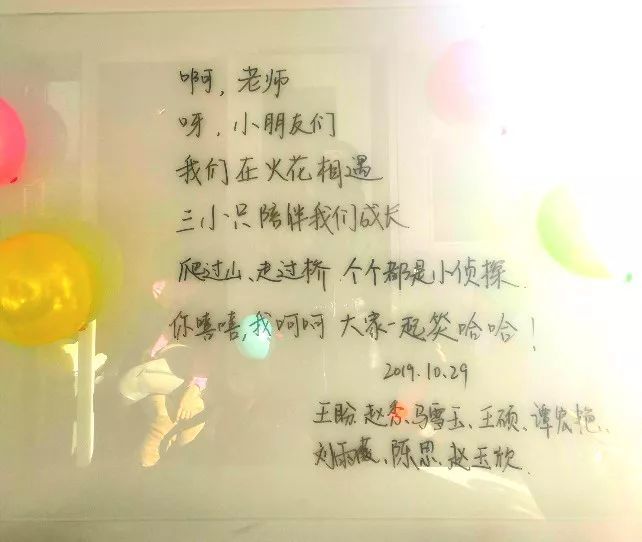 啊，老师
呀，小朋友们
我们在火花相遇
三小只陪伴我们成长
爬过山、走过桥 个个都是小侦探
你嘻嘻，我呵呵 大家一起笑哈哈！
2019.10.29
王盼、赵秀、马雪玉、王硕、谭宏艳、
刘雨薇、陈思、赵玉欣